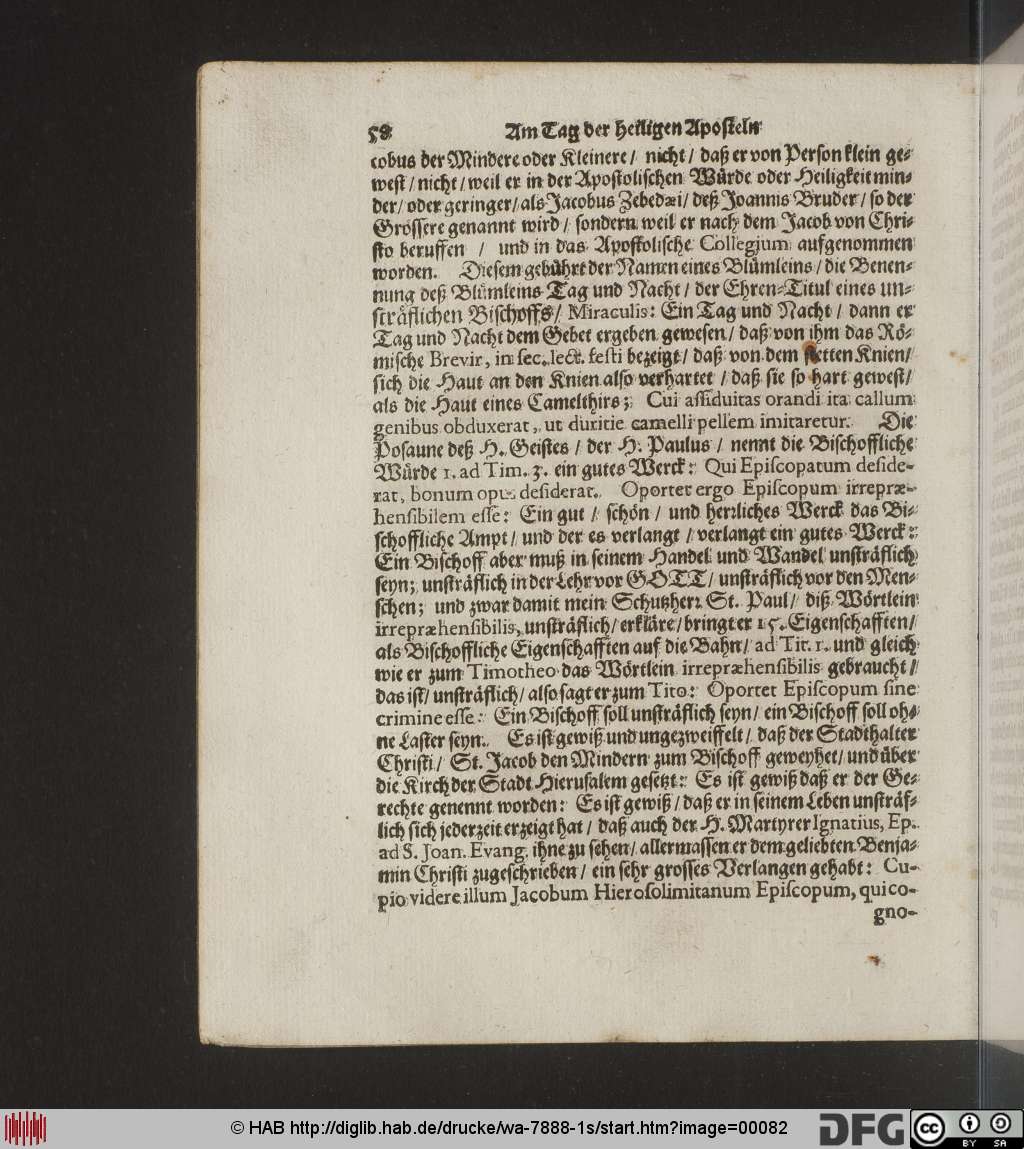 58 Am Tag der heiligen Aposteln
cobus der Mindere oder Kleinere / nicht / daß er von Person klein ge-
west / nicht / weil er in der Apostolischen Würde oder Heiligkeit min-
der / oder geringer / als Jacobus Zebedæi / deß Joannis Bruder / so der
Grössere genannt wird / sondern weil er nach dem Jacob von Chri-
sto beruffen / und in das Apostolische Collegium aufgenommen
worden. Diesem gebührt der Namen eines Blümleins / die Benen-
nung deß Blümleins Tag und Nacht / der Ehren-Titul eines un-
sträflichen Bischoffs / Miraculis: Ein Tag und Nacht / dann er
Tag und Nacht dem Gebet ergeben gewesen / daß von ihm das Rö-
mische Brevir, in sec. lect. festi bezeigt / daß von dem stetten Knien /
sich die Haut an den Knien also verhartet / daß sie so hart gewest /
als die Haut eines Camelthirs; Cui assiduitas orandi ita callum
genibus obduxerat, ut duritie camelli pellem imitaretur. Die
Posaune deß H. Geistes / der H. Paulus / nennt die Bischoffliche
Würde 1. ad Tim. 3. ein gutes Werck: Qui Episcopatum deside-
rat, bonum opus desiderat. Oportet ergo Episcopum irrepræ-
hensibilem esse: Ein gut / schön / und herzliches Werck das Bi-
schoffliche Ampt / und der es verlangt / verlangt ein gutes Werck:
Ein Bischoff aber muß in seinem Handel und Wandel unsträflich
seyn; unsträflich in der Lehr vor GOTT / unsträflich vor den Men-
schen; und zwar damit mein Schutzherr St. Paul / diß Wörtlein
irrepræhensibilis, unsträflich / erkläre / bringt er 15. Eigenschafften /
als Bischoffliche Eigenschafften auf die Bahn / ad Tit. 1. und gleich
wie er zum Timotheo das Wörtlein irrepræhensibilis gebraucht /
das ist / unsträflich / also sagt er zum Tito: Oportet Episcopum sine
crimine esse: Ein Bischoff soll unsträflich seyn / ein Bischoff soll oh-
ne Laster seyn. Es ist gewiß und ungezweiffelt / daß der Stadthalter
Christi / St. Jacob den Mindern zum Bischoff geweyhet / und über
die Kirch der Stadt Hierusalem gesetzt: Es ist gewiß daß er der Ge-
rechte genennt worden: Es ist gewiß / daß er in seinem Leben unsträf-
lich sich jederzeit erzeigt hat / daß auch der H. Martyrer Ignatius, Ep.
ad S. Joan. Evang. ihne zu sehen / allermassen er dem geliebten Benja-
min Christi zugeschrieben / ein sehr grosses Verlangen gehabt: Cu-
pio videre illum Jacobum Hierosolimitanum Episcopum, qui co-
gno-
© HAB http://diglib.hab.de/drucke/wa-7888-1s/start.htm?image=00082
DFG
cc BY SA